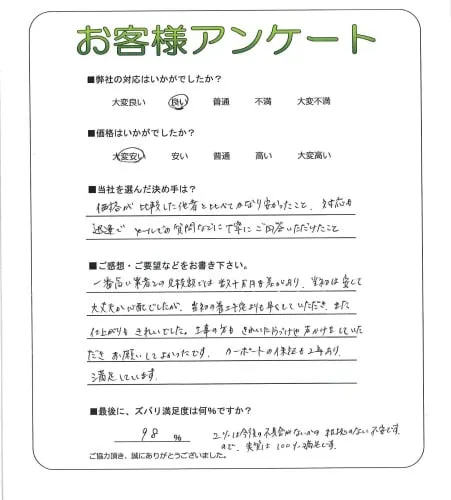 お客様アンケート
■弊社の対応はいかがでしたか?
大変良い 良い 普通 不満 大変不満
■価格はいかがでしたか?
大変安い 安い 普通 高い 大変高い
■当社を選んだ決め手は?
価格が比較した他者と比べてかなり安かったこと、対応が
迅速で メールでの質問などに丁寧にご回答いただけたこと
■ご感想・ご要望などをお書き下さい。
一番高い業者との見積額では数十万円も差があり、当初は安くて
大丈夫か心配でしたが、当初の着工予定よりも早くしていただき、また
仕上がりもきれいでした。工事の方もきれいに片づけや声かけをしていた
だき お願いしてよかったです。カーポートの保証も2年あり、
満足しています。
■最後に、ズバリ満足度は何%ですか?
98 %
2%は今後の不具合がないかの 根拠のない不安です
ので、実質は100%満足です。
ご協力頂き、誠にありがとうございました。